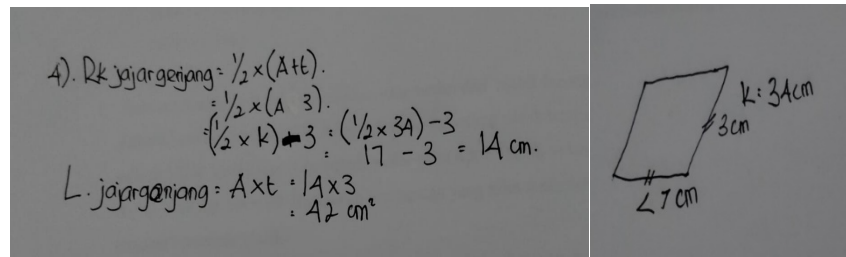 4). Rk jajargenjang = 1/2 × (A+t).
= 1/2 × (A 3).
= (1/2 × k) - 3 = (1/2 × 34) - 3
= 17 - 3 = 14 cm.
L. jajargenjang = A × t = 14 × 3
= 42 cm²
k: 34cm
3cm
< 7 cm